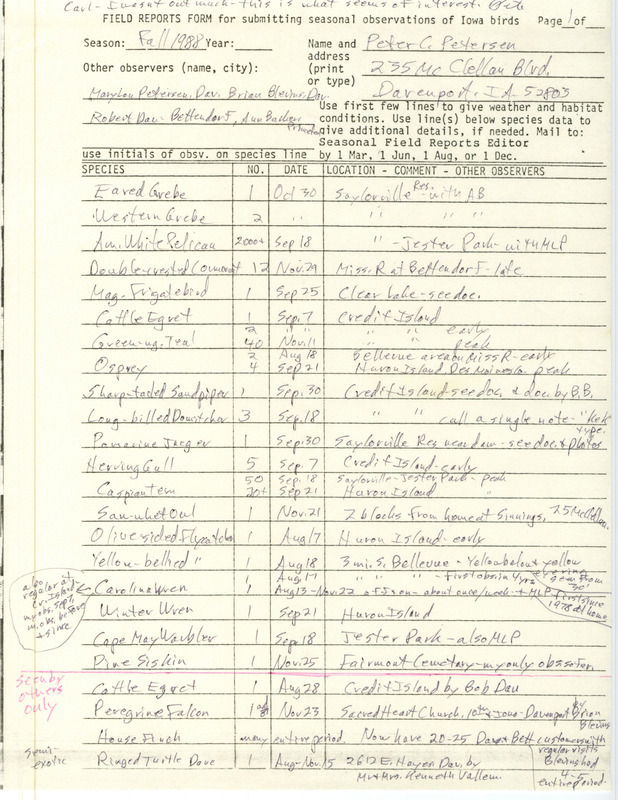 Carl - I wasn't out much - this is what seems of interest. Pete
FIELD REPORTS FORM for submitting seasonal observations of Iowa birds Page 1 of
Season: Fall 1988 Year: Name and Peter C. Petersen
address 235 McClellan Blvd.
Other observers (name, city): (print
or type) Davenport, IA 52803
Marylou Petersen, Dav. Brian Blevins, Dav.
Robert Dau - Bettendorf, Ann Barker Princeton
Use first few lines to give weather and habitat
conditions. Use line(s) below species data to
give additional details, if needed. Mail to:
Seasonal Field Reports Editor
use initials of obsv. on species line by 1 Mar, 1 Jun, 1 Aug, or 1 Dec.
SPECIES NO. DATE LOCATION - COMMENT - OTHER OBSERVERS
Eared Grebe 1 Oct 30 Saylorville Res. - with AB
Western Grebe 2 " " " " "
Am. White Pelican 2000+ Sep 18 " - Jester Park - with MLP
Double-crested Cormorant 12 Nov. 29 Miss. R at Bettendorf - late
Mag. Frigatebird 1 Sep 25 Clear Lake - see doc.
Cattle Egret 1 Sep. 7 Credit Island
2 " " " " early
Green-wg. Teal 40 Nov. 11 " " peak
Osprey 2 Aug 18 Bellevue area on Miss R - early
4 Sep 21 Huron Island Des Moines Co. - peak
Sharp-tailed Sandpiper 1 Sep. 30 Credit Island - see doc. + doc. by B.B.
Long-billed Dowitcher 3 Sep. 18 " " call a single note - "Kek" type.
Pomarine Jaeger 1 Sep. 30 Saylorville Res near dam - see doc. + photos
Herring Gull 5 Sep. 7 Credit Island - early
50 Sep. 18 Saylorville - Jester Park - peak
Caspian Tern 20+ Sep 21 Huron Island "
Saw-whet Owl 1 Nov. 21 2 blocks from home at Sinnings,
Olive sided Flycatcher 1 Aug 17 Huron Island - early
Yellow-bellied " 1 Aug 18 3 mi. S. Bellevue - Yellow below + yellow eye ring seen from 30'
1 Aug 17 " " " - first obs in 4 yrs
Carolina Wren 1 Aug 13 - Nov. 22 about once/week + MLP first since 1978 at home
also regular at Cr. Island
Winter Wren 1 Sep 21 Huron Island
Cape May Warbler 1 Sep 18 Jester Park - also MLP
Pine Siskin 1 Nov. 25 Fairmont Cemetary - my only obs so far.
Seen by others only
Cattle Egret 1 Aug 28 Credit Island by Bob Dau
Peregrine Falcon 1 Nov 23 Sacred Heart Church, 10th + Iowa - Davenport by Brian Blevins
House Finch many entire period. Now have 20-25 Dav + Bett customers with regular visits
Blevins had 4-5 entire period.
semi-exotic
Ringed Turtle Dove 1 Aug - Nov. 15 2612 E. Hayes Dav. by
Mr + Mrs. Kenneth Vallem.